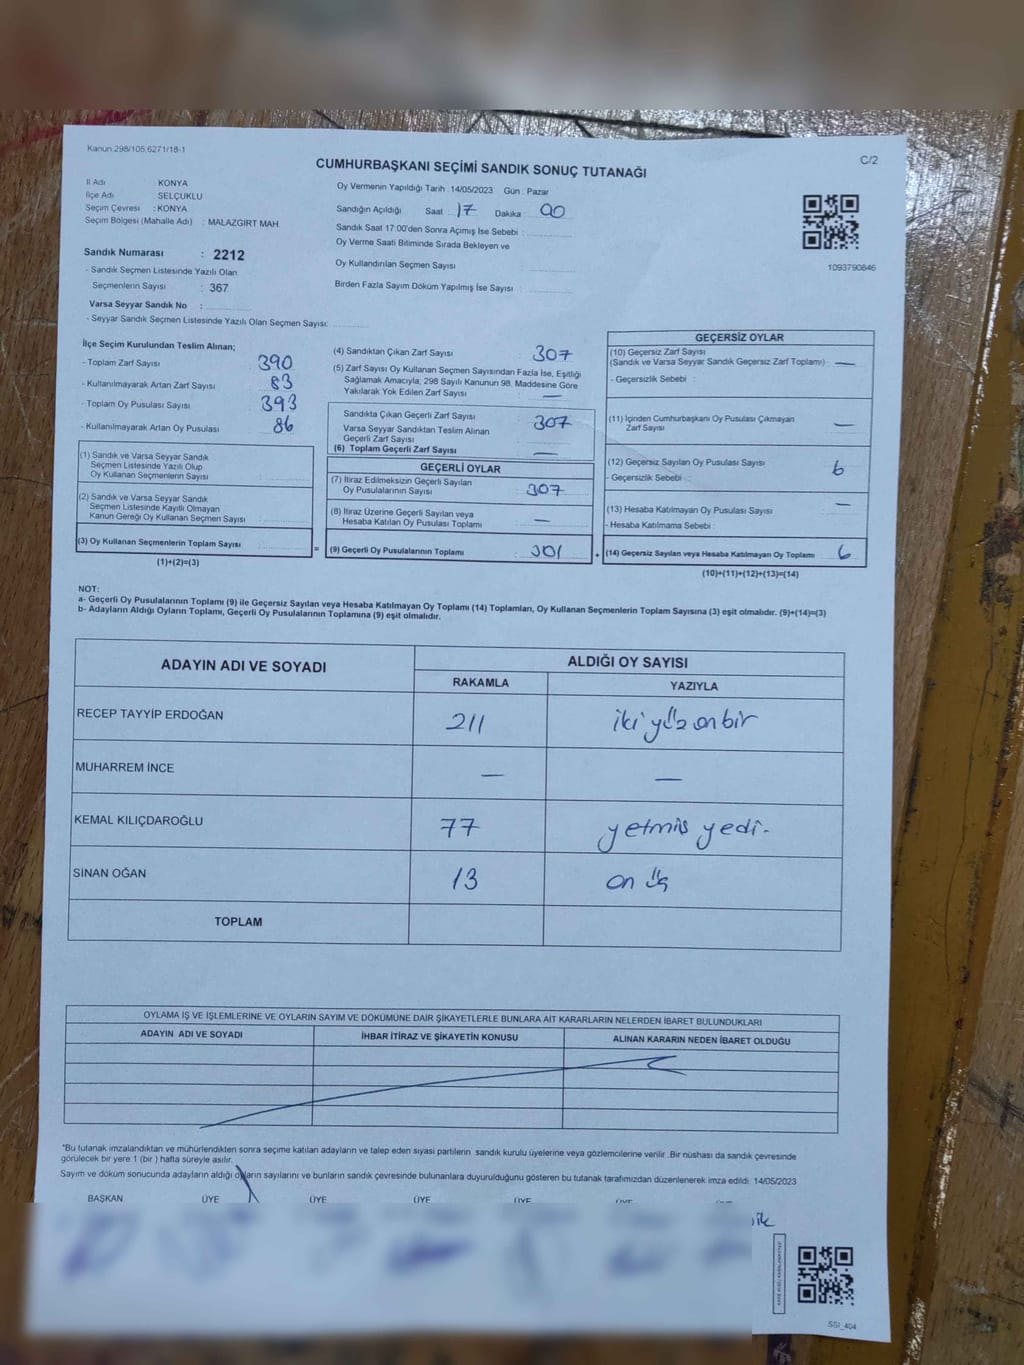 Kanun.298/105,6271/18-1
C/2
CUMHURBAŞKANI SEÇİMİ SANDIK SONUÇ TUTANAĞI
İl Adı : KONYA
İlçe Adı : SELÇUKLU
Seçim Çevresi : KONYA
Seçim Bölgesi (Mahalle Adı) : MALAZGİRT MAH.
Oy Vermenin Yapıldığı Tarih : 14/05/2023 Gün : Pazar
Sandığın Açıldığı Saat : 17 Dakika : 00
Sandık Saat 17:00'den Sonra Açımış İse Sebebi :
Oy Verme Saati Bitiminde Sırada Bekleyen ve
Oy Kullandırılan Seçmen Sayısı :
Birden Fazla Sayım Döküm Yapılmış İse Sayısı :
1093790846
Sandık Numarası : 2212
- Sandık Seçmen Listesinde Yazılı Olan
Seçmenlerin Sayısı : 367
Varsa Seyyar Sandık No :
- Seyyar Sandık Seçmen Listesinde Yazılı Olan Seçmen Sayısı:
İlçe Seçim Kurulundan Teslim Alınan;
- Toplam Zarf Sayısı : 390
- Kullanılmayarak Artan Zarf Sayısı : 83
- Toplam Oy Pusulası Sayısı : 393
- Kullanılmayarak Artan Oy Pusulası : 86
(1) Sandık ve Varsa Seyyar Sandık
Seçmen Listesinde Yazılı Olup
Oy Kullanan Seçmenlerin Sayısı :
(2) Sandık ve Varsa Seyyar Sandık
Seçmen Listesinde Kayıtlı Olmayan
Kanun Gereği Oy Kullanan Seçmen Sayısı :
(3) Oy Kullanan Seçmenlerin Toplam Sayısı :
(1)+(2)=(3)
(4) Sandıktan Çıkan Zarf Sayısı : 307
(5) Zarf Sayısı Oy Kullanan Seçmen Sayısından Fazla İse, Eşitliği
Sağlamak Amacıyla; 298 Sayılı Kanunun 98. Maddesine Göre
Yakılarak Yok Edilen Zarf Sayısı : —
Sandıkta Çıkan Geçerli Zarf Sayısı : 307
Varsa Seyyar Sandıktan Teslim Alınan
Geçerli Zarf Sayısı :
(6) Toplam Geçerli Zarf Sayısı : —
GEÇERLİ OYLAR
(7) İtiraz Edilmeksizin Geçerli Sayılan
Oy Pusulalarının Sayısı : 307
(8) İtiraz Üzerine Geçerli Sayılan veya
Hesaba Katılan Oy Pusulası Toplamı : —
= (9) Geçerli Oy Pusulalarının Toplamı : 301 +
GEÇERSİZ OYLAR
(10) Geçersiz Zarf Sayısı
(Sandık ve Varsa Seyyar Sandık Geçersiz Zarf Toplamı) : —
- Geçersizlik Sebebi :
(11) İçinden Cumhurbaşkanı Oy Pusulası Çıkmayan
Zarf Sayısı : —
(12) Geçersiz Sayılan Oy Pusulası Sayısı : 6
- Geçersizlik Sebebi :
(13) Hesaba Katılmayan Oy Pusulası Sayısı : —
- Hesaba Katılmama Sebebi :
(14) Geçersiz Sayılan veya Hesaba Katılmayan Oy Toplamı : 6
(10)+(11)+(12)+(13)=(14)
NOT:
a- Geçerli Oy Pusulalarının Toplamı (9) ile Geçersiz Sayılan veya Hesaba Katılmayan Oy Toplamı (14) Toplamları, Oy Kullanan Seçmenlerin Toplam Sayısına (3) eşit olmalıdır. (9)+(14)=(3)
b- Adayların Aldığı Oyların Toplamı, Geçerli Oy Pusulalarının Toplamına (9) eşit olmalıdır.
ADAYIN ADI VE SOYADI ALDIĞI OY SAYISI
RAKAMLA YAZIYLA
RECEP TAYYİP ERDOĞAN 211 iki yüz on bir
MUHARREM İNCE — —
KEMAL KILIÇDAROĞLU 77 yetmiş yedi.
SİNAN OĞAN 13 on üç
TOPLAM
OYLAMA İŞ VE İŞLEMLERİNE VE OYLARIN SAYIM VE DÖKÜMÜNE DAİR ŞİKAYETLERLE BUNLARA AİT KARARLARIN NELERDEN İBARET BULUNDUKLARI
ADAYIN ADI VE SOYADI İHBAR İTİRAZ VE ŞİKAYETİN KONUSU ALINAN KARARIN NEDEN İBARET OLDUĞU
*Bu tutanak imzalandıktan ve mühürlendikten sonra seçime katılan adayların ve talep eden siyasi partilerin sandık kurulu üyelerine veya gözlemcilerine verilir. Bir nüshası da sandık çevresinde
görülecek bir yere 1 (bir) hafta süreyle asılır.
Sayım ve döküm sonucunda adayların aldığı oyların sayılarını ve bunların sandık çevresinde bulunanlara duyurulduğunu gösteren bu tutanak tarafımızdan düzenlenerek imza edildi. 14/05/2023
BAŞKAN ÜYE ÜYE ÜYE ÜYE ÜYE
SSI_404